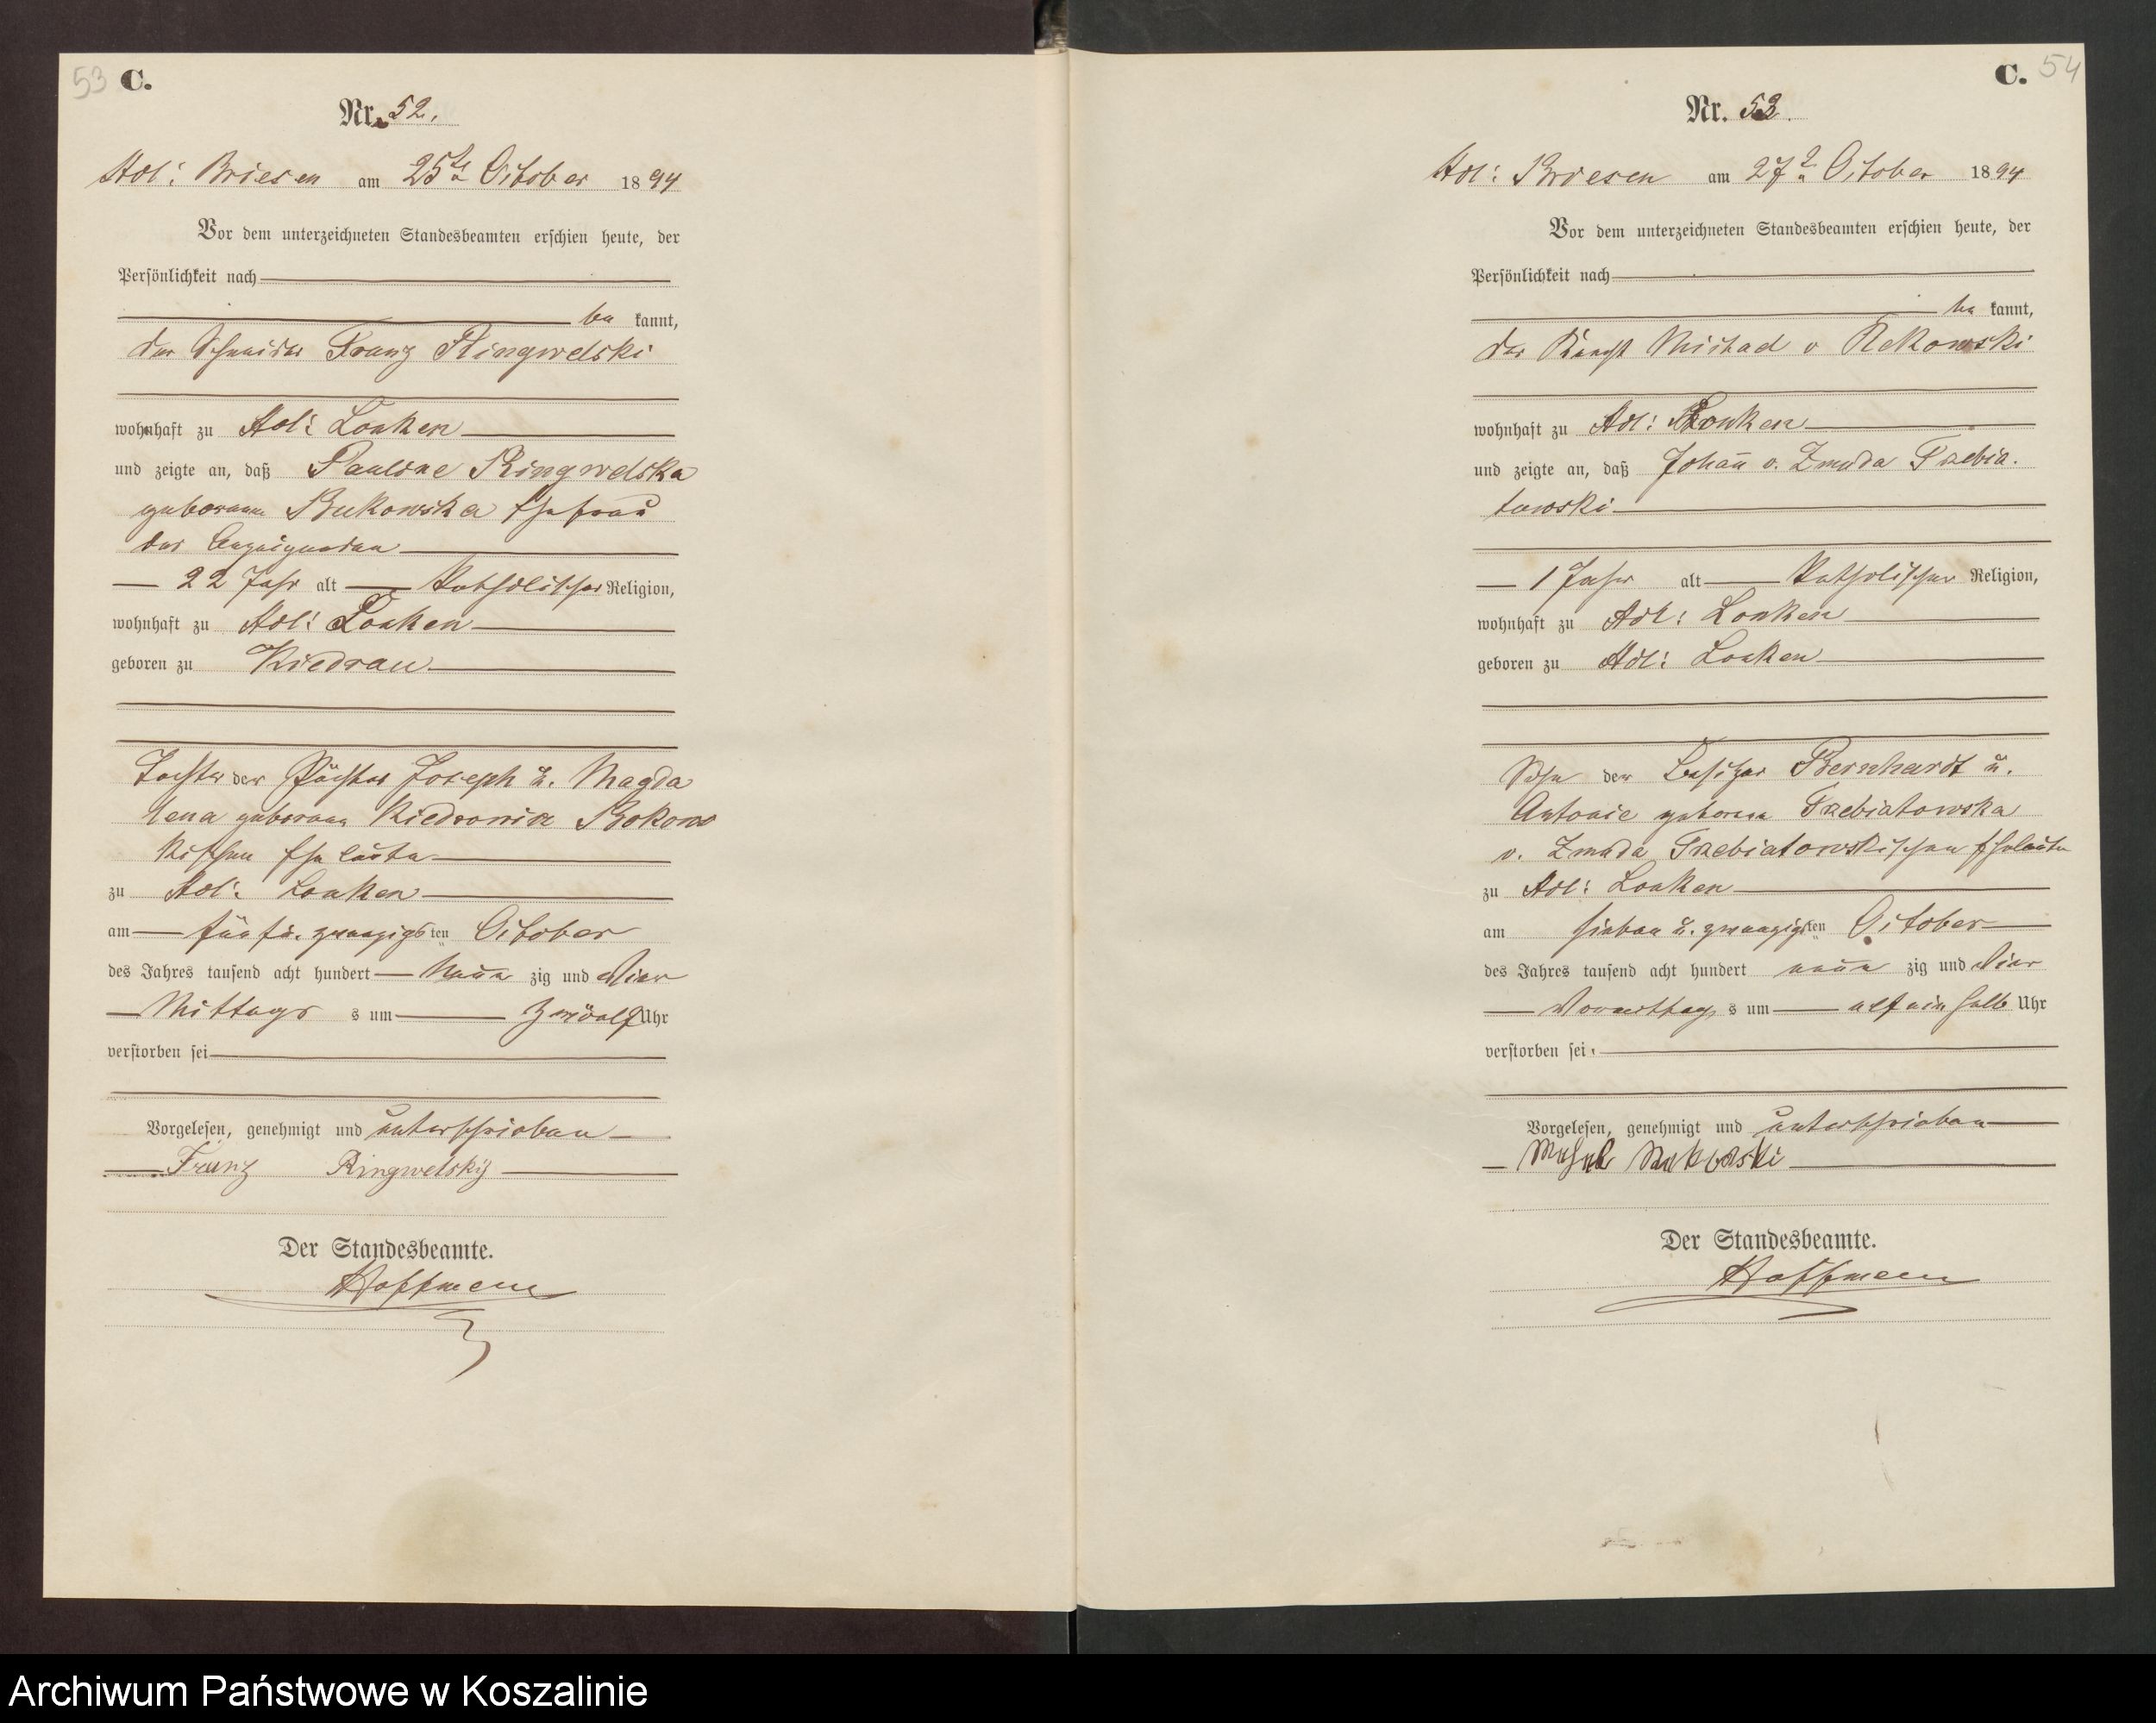 53 C.
Nr. 52.
Adl: Briesen am 25te October 1894
Vor dem unterzeichneten Standesbeamten erschien heute, der
Persönlichkeit nach
be kannt,
der Schneider Franz Ringwelski
wohnhaft zu Adl: Lonken
und zeigte an, daß Pauline Ringwelska
geborene Bukowska Ehefrau
des Anzeigenden
22 Jahr alt Katholischer Religion,
wohnhaft zu Adl: Lonken
geboren zu Kiedrau
Tochter der Pächter Joseph u. Magda
lena geborene Bokows
kischen Eheleute
zu Adl: Lonken
am fünf u. zwanzigsten October
des Jahres tausend acht hundert neun zig und vier
Mittags s um zwölf Uhr
verstorben sei
Vorgelesen, genehmigt und unterschrieben
Franz Ringwelskÿ
Der Standesbeamte.
Hoffmann
C. 54
Nr. 53.
Adl: Briesen am 27 October 1894
Vor dem unterzeichneten Standesbeamten erschien heute, der
Persönlichkeit nach
be kannt,
der Knecht Michael v Rekowski
wohnhaft zu Adl: Lonken
und zeigte an, daß Johann v. Zmuda Trebia
towski
1 Jahr alt Katholischer Religion,
wohnhaft zu Adl: Lonken
geboren zu Adl: Lonken
Sohn der Besitzer Bernhardt u.
Antonie geborene Trebiatowska
v. Zmuda Trebiatowskischen Eheleute
zu Adl: Lonken
am sieben u. zwanzigsten October
des Jahres tausend acht hundert neun zig und vier
Vormittag s um elf ein halb Uhr
verstorben sei.
Vorgelesen, genehmigt und unterschrieben
Der Standesbeamte.
Hoffmann
Archiwum Państwowe w Koszalinie